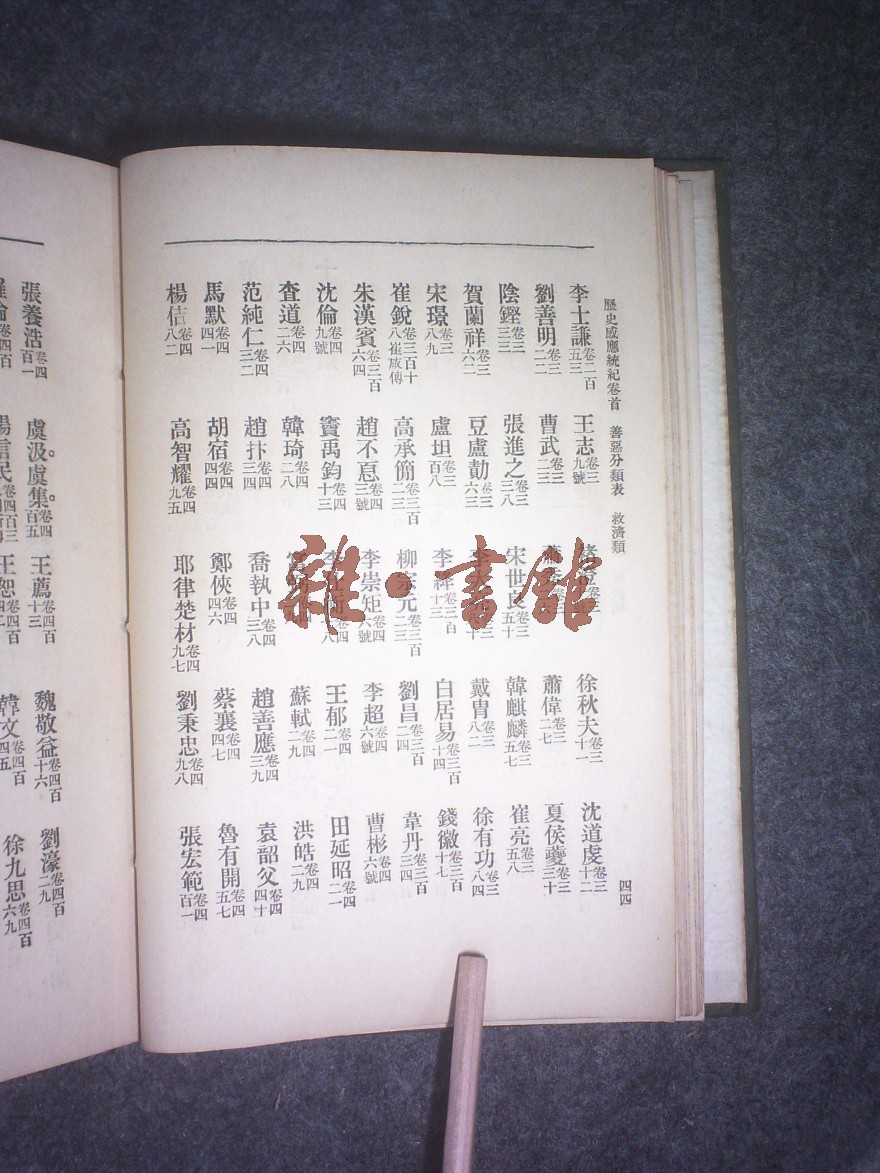 歷史感應統紀卷首　善惡分類表　救濟類　四四
李士謙卷二百五三　王志卷三九號　徐秋夫卷三十一　沈道虔卷三十二
劉善明卷三二二　曹武卷三二三　蕭偉卷三二七　夏侯夔卷三三十
陰鏗卷三三三　張進之卷三三八　宋世良卷三五十　韓麒麟卷三五七　崔亮卷三五八
賀蘭祥卷三六二　豆盧勣卷三六三　戴胄卷三八二　徐有功卷三八四
宋璟卷三八九　盧坦卷三百八　白居易卷三百十四　錢徽卷三百十七
崔銳卷三百十八崔戎傳　高承簡卷三百二三　柳宗元卷三百二三　劉昌卷三百二四　韋丹卷三百三四
朱漢賓卷三百六四　趙不悥卷四三號　李崇矩卷四六號　李超卷四六號　曹彬卷四六號
沈倫卷四九號　竇禹鈞卷四十三　王郁卷四二一　田延昭卷四二一
查道卷四二六　韓琦卷四二八　蘇軾卷四二九　洪皓卷四二九
范純仁卷四三二　趙抃卷四三四　喬執中卷四三八　趙善應卷四三九　袁韶父卷四四十
馬默卷四四一　胡宿卷四四四　鄭俠卷四四六　蔡襄卷四四七　魯有開卷四五七
楊佶卷四八二　高智耀卷四九五　耶律楚材卷四九七　劉秉忠卷四九八　張宏範卷四百一
張養浩卷四百一　虞汲。虞集。卷四百五　王薦卷四百十三　魏敬益卷四百十六　劉濠卷四百二九
楊信民卷四百三　王恕卷四百　韓文卷四百四五　徐九思卷四百六九
雜·書館